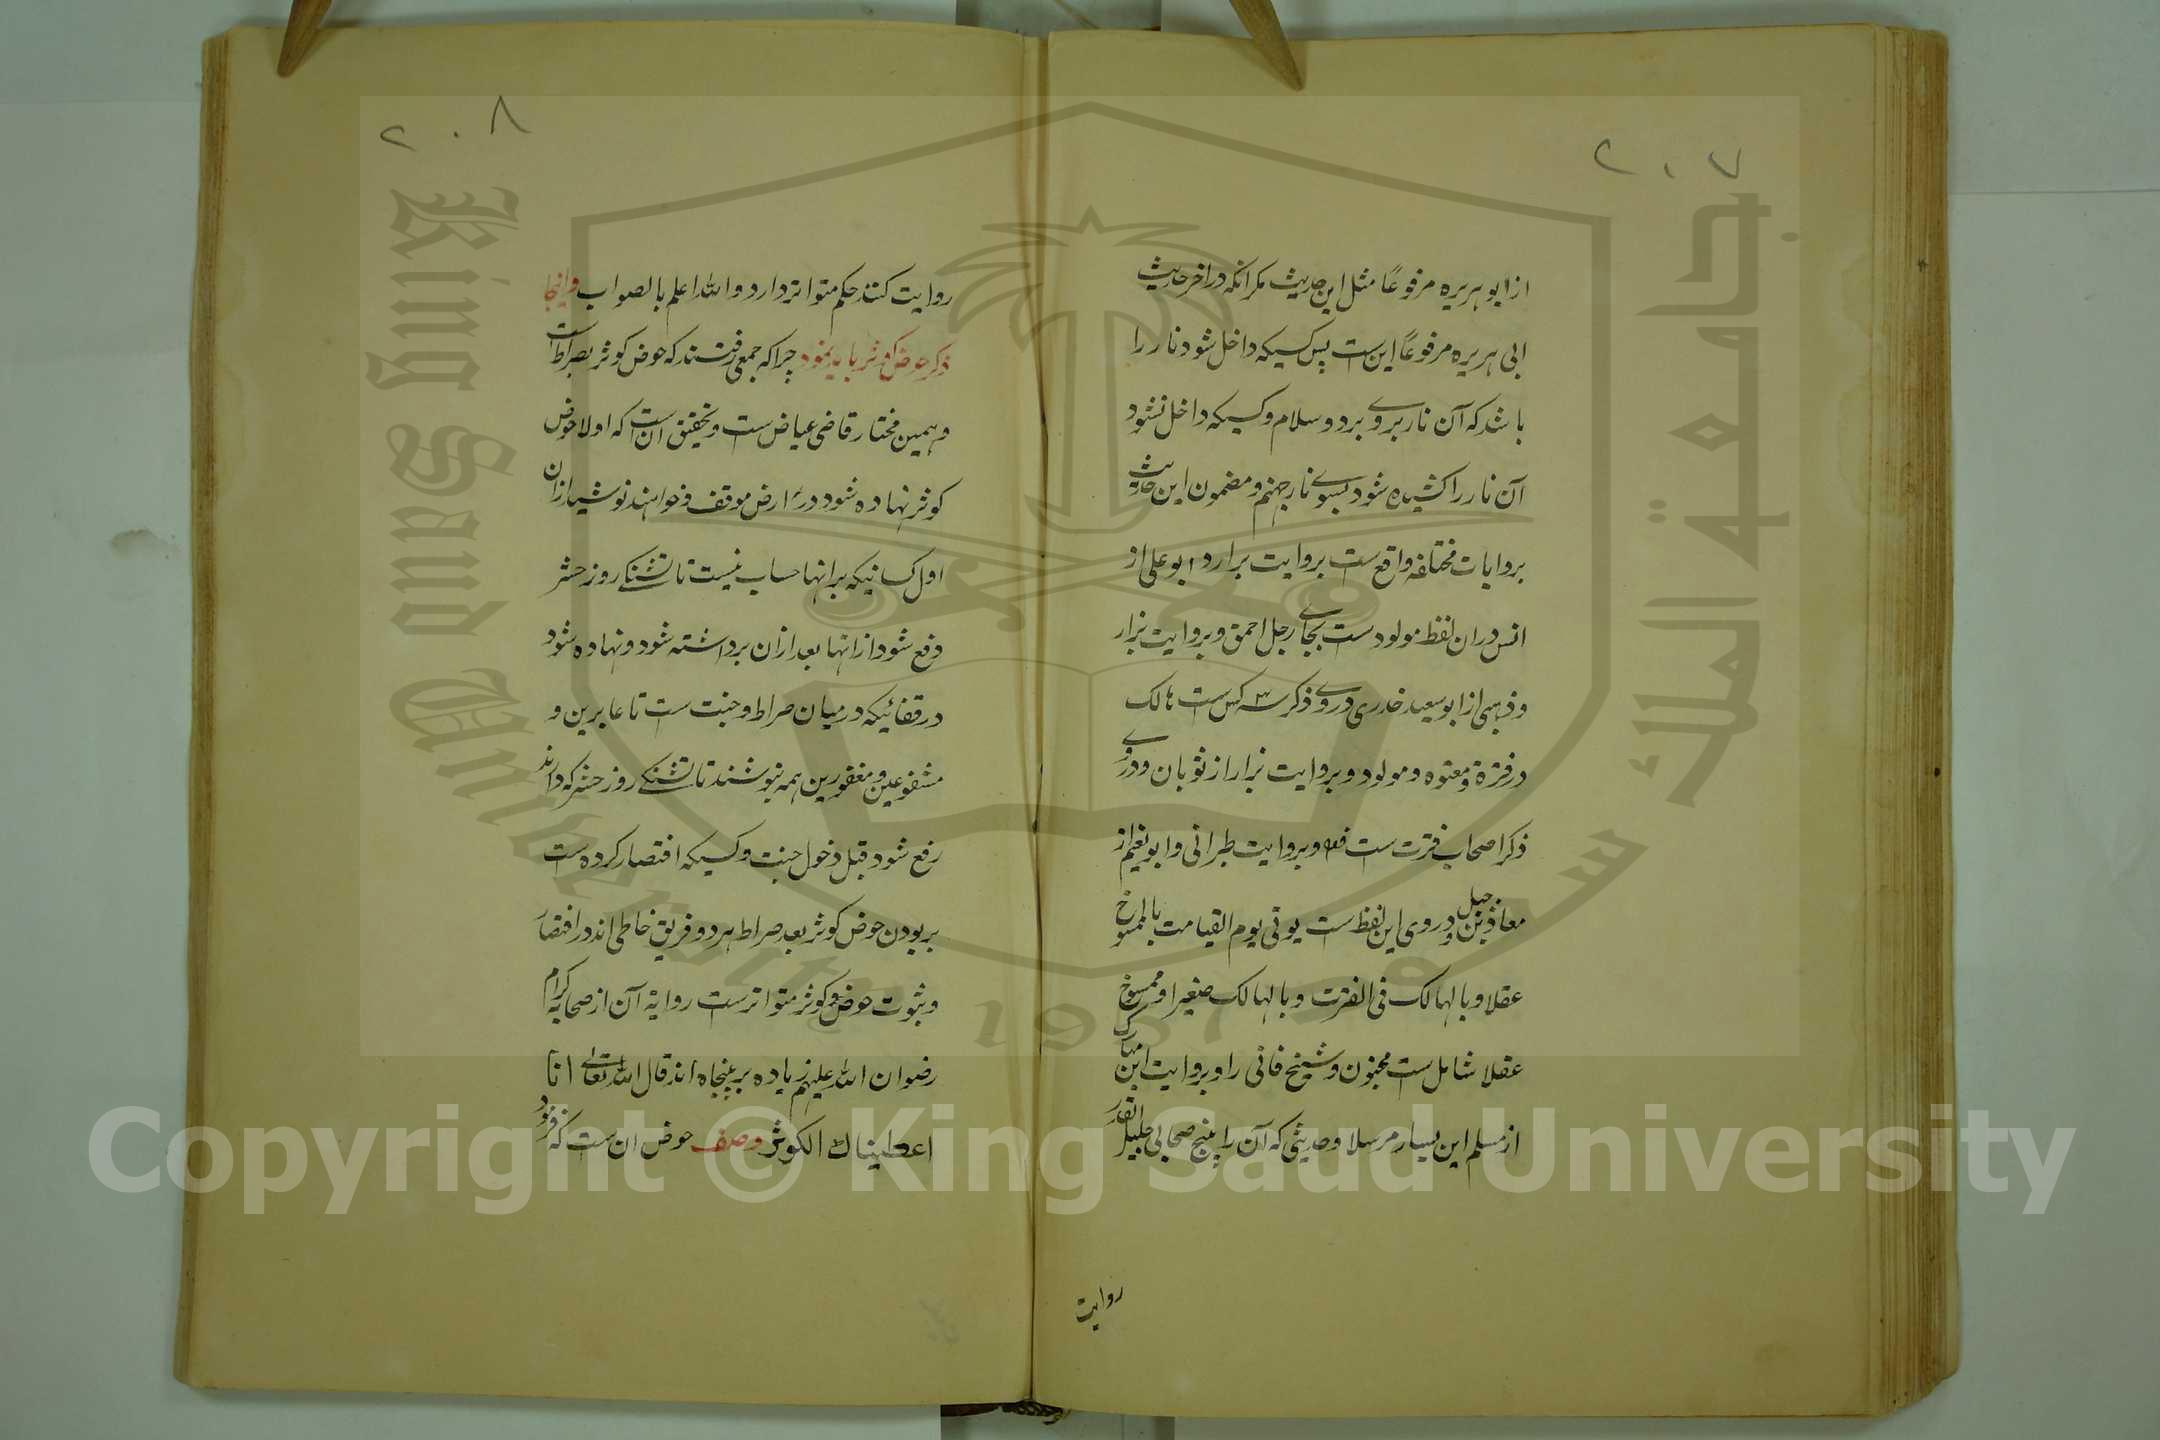 ٢٠٧
از ابو هریره مرفوعًا مثل این حدیث مگر انکه در اخر حدیث
ابی هریره مرفوعًا این ست پس کسیکه داخل شود نار را
باشد که آن نار بروی برد و سلام و کسیکه داخل نشود
آن نار را کشیده شود بسوی نار جهنم و مضمون این حدیث
بروایات مختلفه واقع ست بروایت برارد ابو علی از
انس دران لفظ مولود ست بجای رجل احمق و بروایت بزار
و ذهبی از ابو سعید خدری دروی ذکر سه کس ست هالک
در فترة و معتوه و مولود و بروایت بزار از ثوبان و دروی
ذکر اصحاب فترت ست و بروایت طبرانی و ابو نعیم از
معاذ بن جبل و دروی این لفظ ست یوتی یوم القیامت بالممسوخ
عقلا و بالهالک فی الفترت و بالهالک صغیرا و ممسوخ
عقلا شامل ست مجنون و شیخ فانی را و بروایت ابن مبارک
از مسلم ابن یسار مرسلا و حدیثی که آن را پنج صحابی جلیل القدر
روایت
٢٠٨
روایت کنند حکم متواتر دارد والله اعلم بالصواب واینجا
ذکر حوض کوثر باید نمود چرا که جمعی رفتند که حوض کوثر بصراط است
و همین مختار قاضی عیاض ست و تحقیق آن است که اولا حوض
کوثر نهاده شود در ارض موقف و خواهند نوشید ازان
اول کسانیکه برانها حساب نیست تا تشنگی روز حشر
دفع شود از انها بعد ازان برداشته شود و نهاده شود
در قفائیکه درمیان صراط و جنت ست تا عابرین و
مشفوعین و مغفورین همه بنوشند تا تشنگی روز حشر که دارند
رفع شود قبل دخول جنت و کسیکه اقتصار کرده ست
بر بودن حوض کوثر بعد صراط هر دو فریق خاطی اند در اقتصار
و ثبوت حوض کوثر متواتر ست روایة آن از صحابه کرام
رضوان الله علیهم زیاده بر پنجاه اند قال الله تعالی انا
اعطیناك الکوثر وصف حوض ان ست که فرمود
King Saud University
جامعة الملك سعود
1957
Copyright © King Saud University